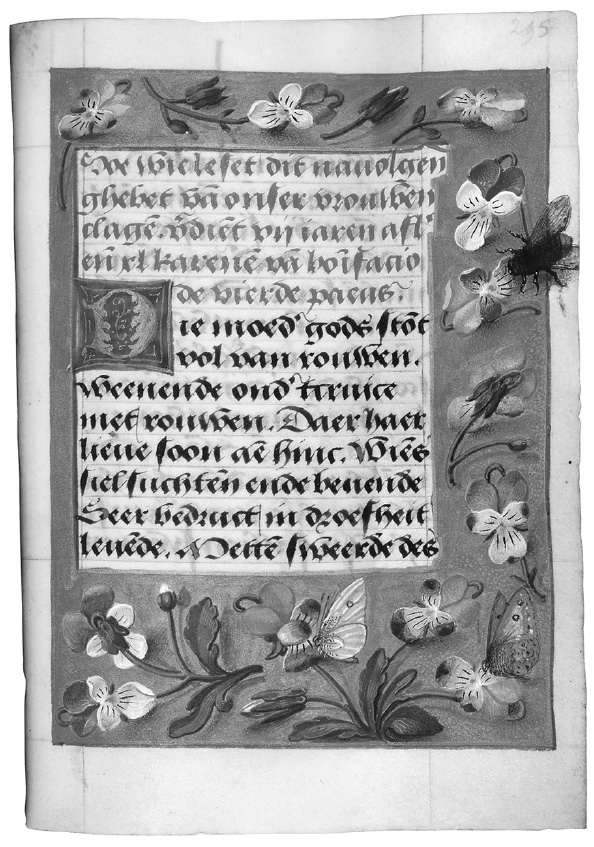 295
So wie leset dit navolgen
ghebet vā onser vrouwen
clagē v̄diēt vij iaren afl'
eñ xl karenē vā bonifacio
de vierde paeus.
Die moed' gods stōt
vol van rouwen.
weenende ond' tcruice
met rouwen. Daer haer
lieue soon aē hinc. Wiēs
siel suchtēn ende beuende
Seer bedruct in droefheit
leuēde. Mettē sweerde des